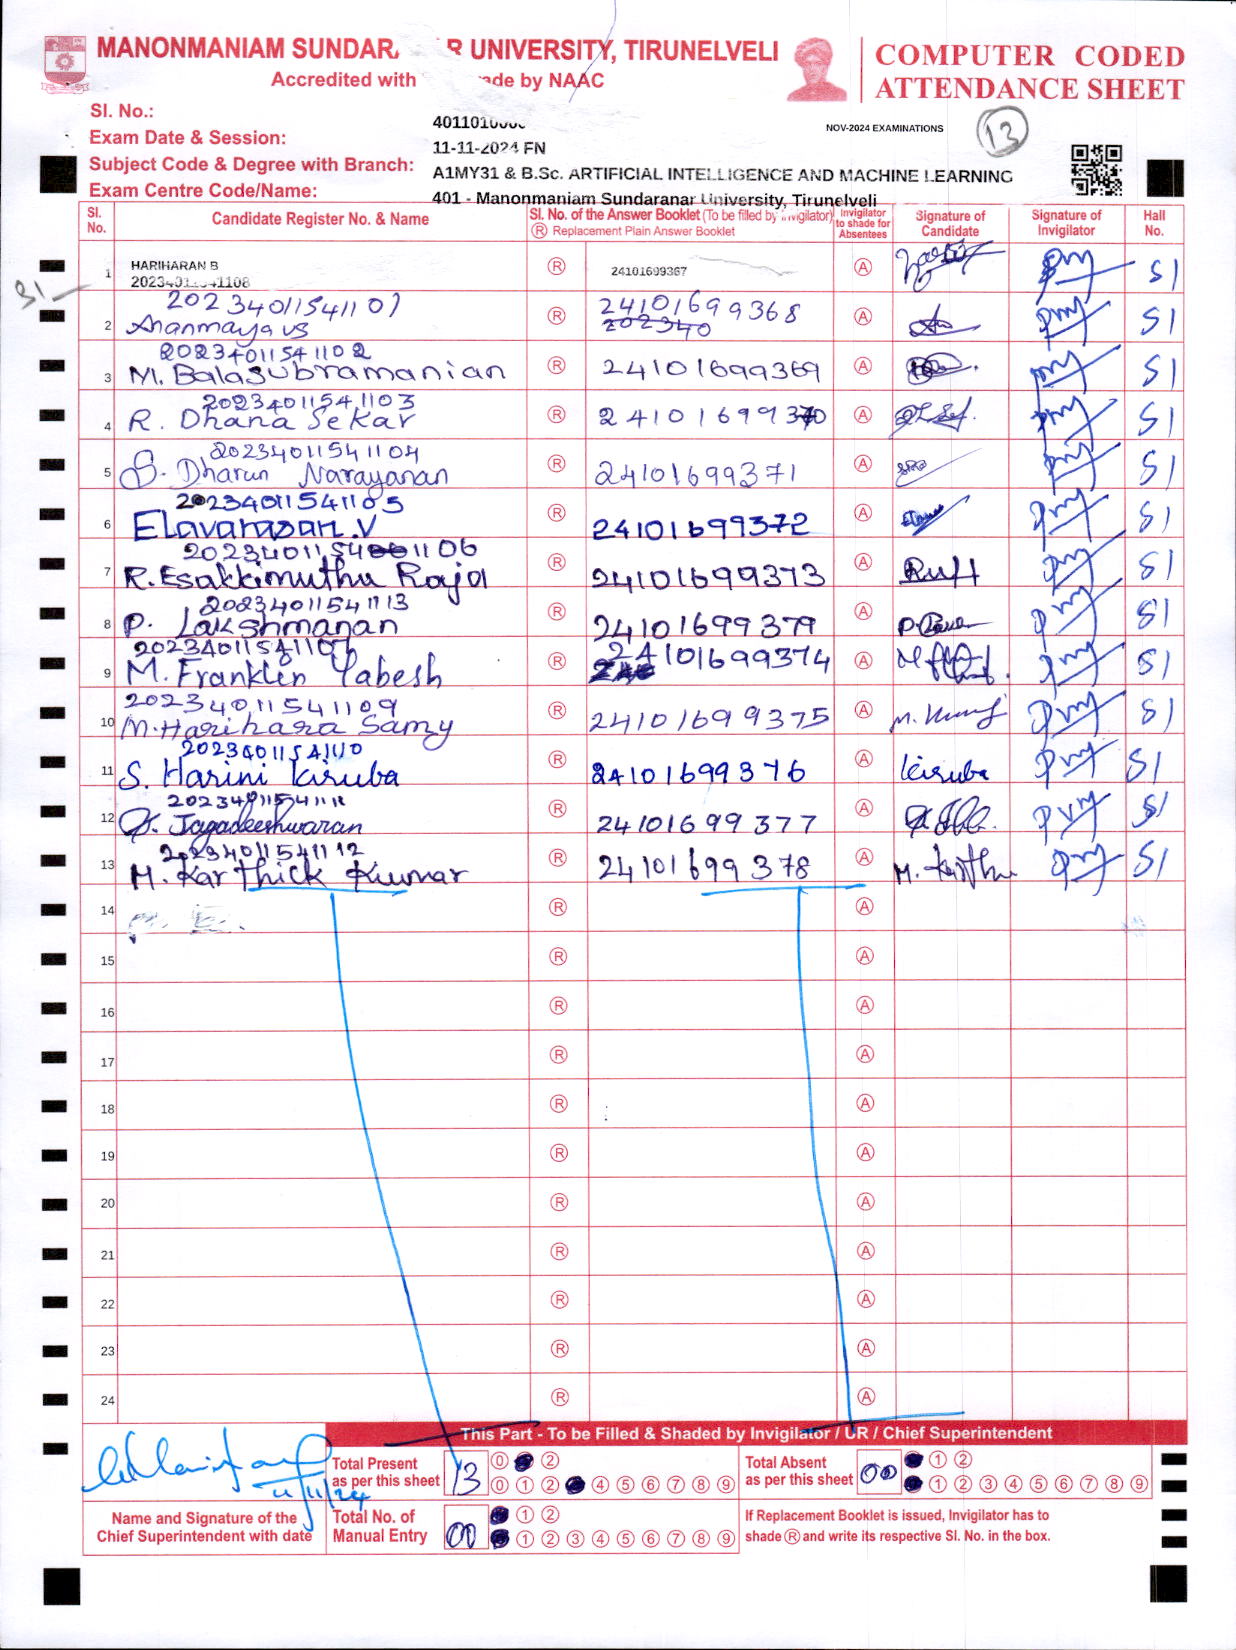 MANONMANIAM SUNDARA R UNIVERSITY, TIRUNELVELI
Accredited with ade by NAAC
COMPUTER CODED
ATTENDANCE SHEET
Sl. No.:
Exam Date & Session:
11-11-2024 FN
NOV-2024 EXAMINATIONS
13
Subject Code & Degree with Branch:
A1MY31 & B.Sc. ARTIFICIAL INTELLIGENCE AND MACHINE LEARNING
Exam Centre Code/Name:
401 - Manonmaniam Sundaranar University, Tirunelveli
Sl. No.
Candidate Register No. & Name
Sl. No. of the Answer Booklet (To be filled by Invigilator)
Ⓡ Replacement Plain Answer Booklet
Invigilator to shade for Absentees
Signature of Candidate
Signature of Invigilator
Hall No.
S1
1 HARIHARAN B Ⓡ 24101699367 Ⓐ S1
20234011541107
2 Ⓡ 24101699368 Ⓐ S1
202340
20234011541102
3 M. Balasubramanian Ⓡ 24101699369 Ⓐ S1
20234011541103
4 R. Dhana Sekar Ⓡ 24101699370 Ⓐ S1
20234011541104
5 S. Dharun Narayanan Ⓡ 24101699371 Ⓐ S1
20234011541105
6 Elavarasan.V Ⓡ 24101699372 Ⓐ S1
7 R.Esakkimuthu Raja Ⓡ 24101699373 Ⓐ S1
20234011541113
8 P. Lakshmanan Ⓡ 24101699379 Ⓐ S1
20234011541107
9 M. Franklin Yabesh Ⓡ 24101699374 Ⓐ S1
20234011541109
10 M.Harihara Samy Ⓡ 24101699375 Ⓐ S1
20234011541110
11 S. Harini Kiruba Ⓡ 24101699376 Ⓐ Kiruba S1
20234011541111
12 Jagadeeshwaran Ⓡ 24101699377 Ⓐ S1
20234011541112
13 M. Karthick Kumar Ⓡ 24101699378 Ⓐ M. Karthi S1
14 Ⓡ Ⓐ
15 Ⓡ Ⓐ
16 Ⓡ Ⓐ
17 Ⓡ Ⓐ
18 Ⓡ Ⓐ
19 Ⓡ Ⓐ
20 Ⓡ Ⓐ
21 Ⓡ Ⓐ
22 Ⓡ Ⓐ
23 Ⓡ Ⓐ
24 Ⓡ Ⓐ
This Part - To be Filled & Shaded by Invigilator / UR / Chief Superintendent
11/11/24
Name and Signature of the
Chief Superintendent with date
Total Present
as per this sheet
13
0 2
0 1 2 4 5 6 7 8 9
Total Absent
as per this sheet
00
1 2
1 2 3 4 5 6 7 8 9
Total No. of
Manual Entry
00
1 2
1 2 3 4 5 6 7 8 9
If Replacement Booklet is issued, Invigilator has to
shade Ⓡ and write its respective Sl. No. in the box.